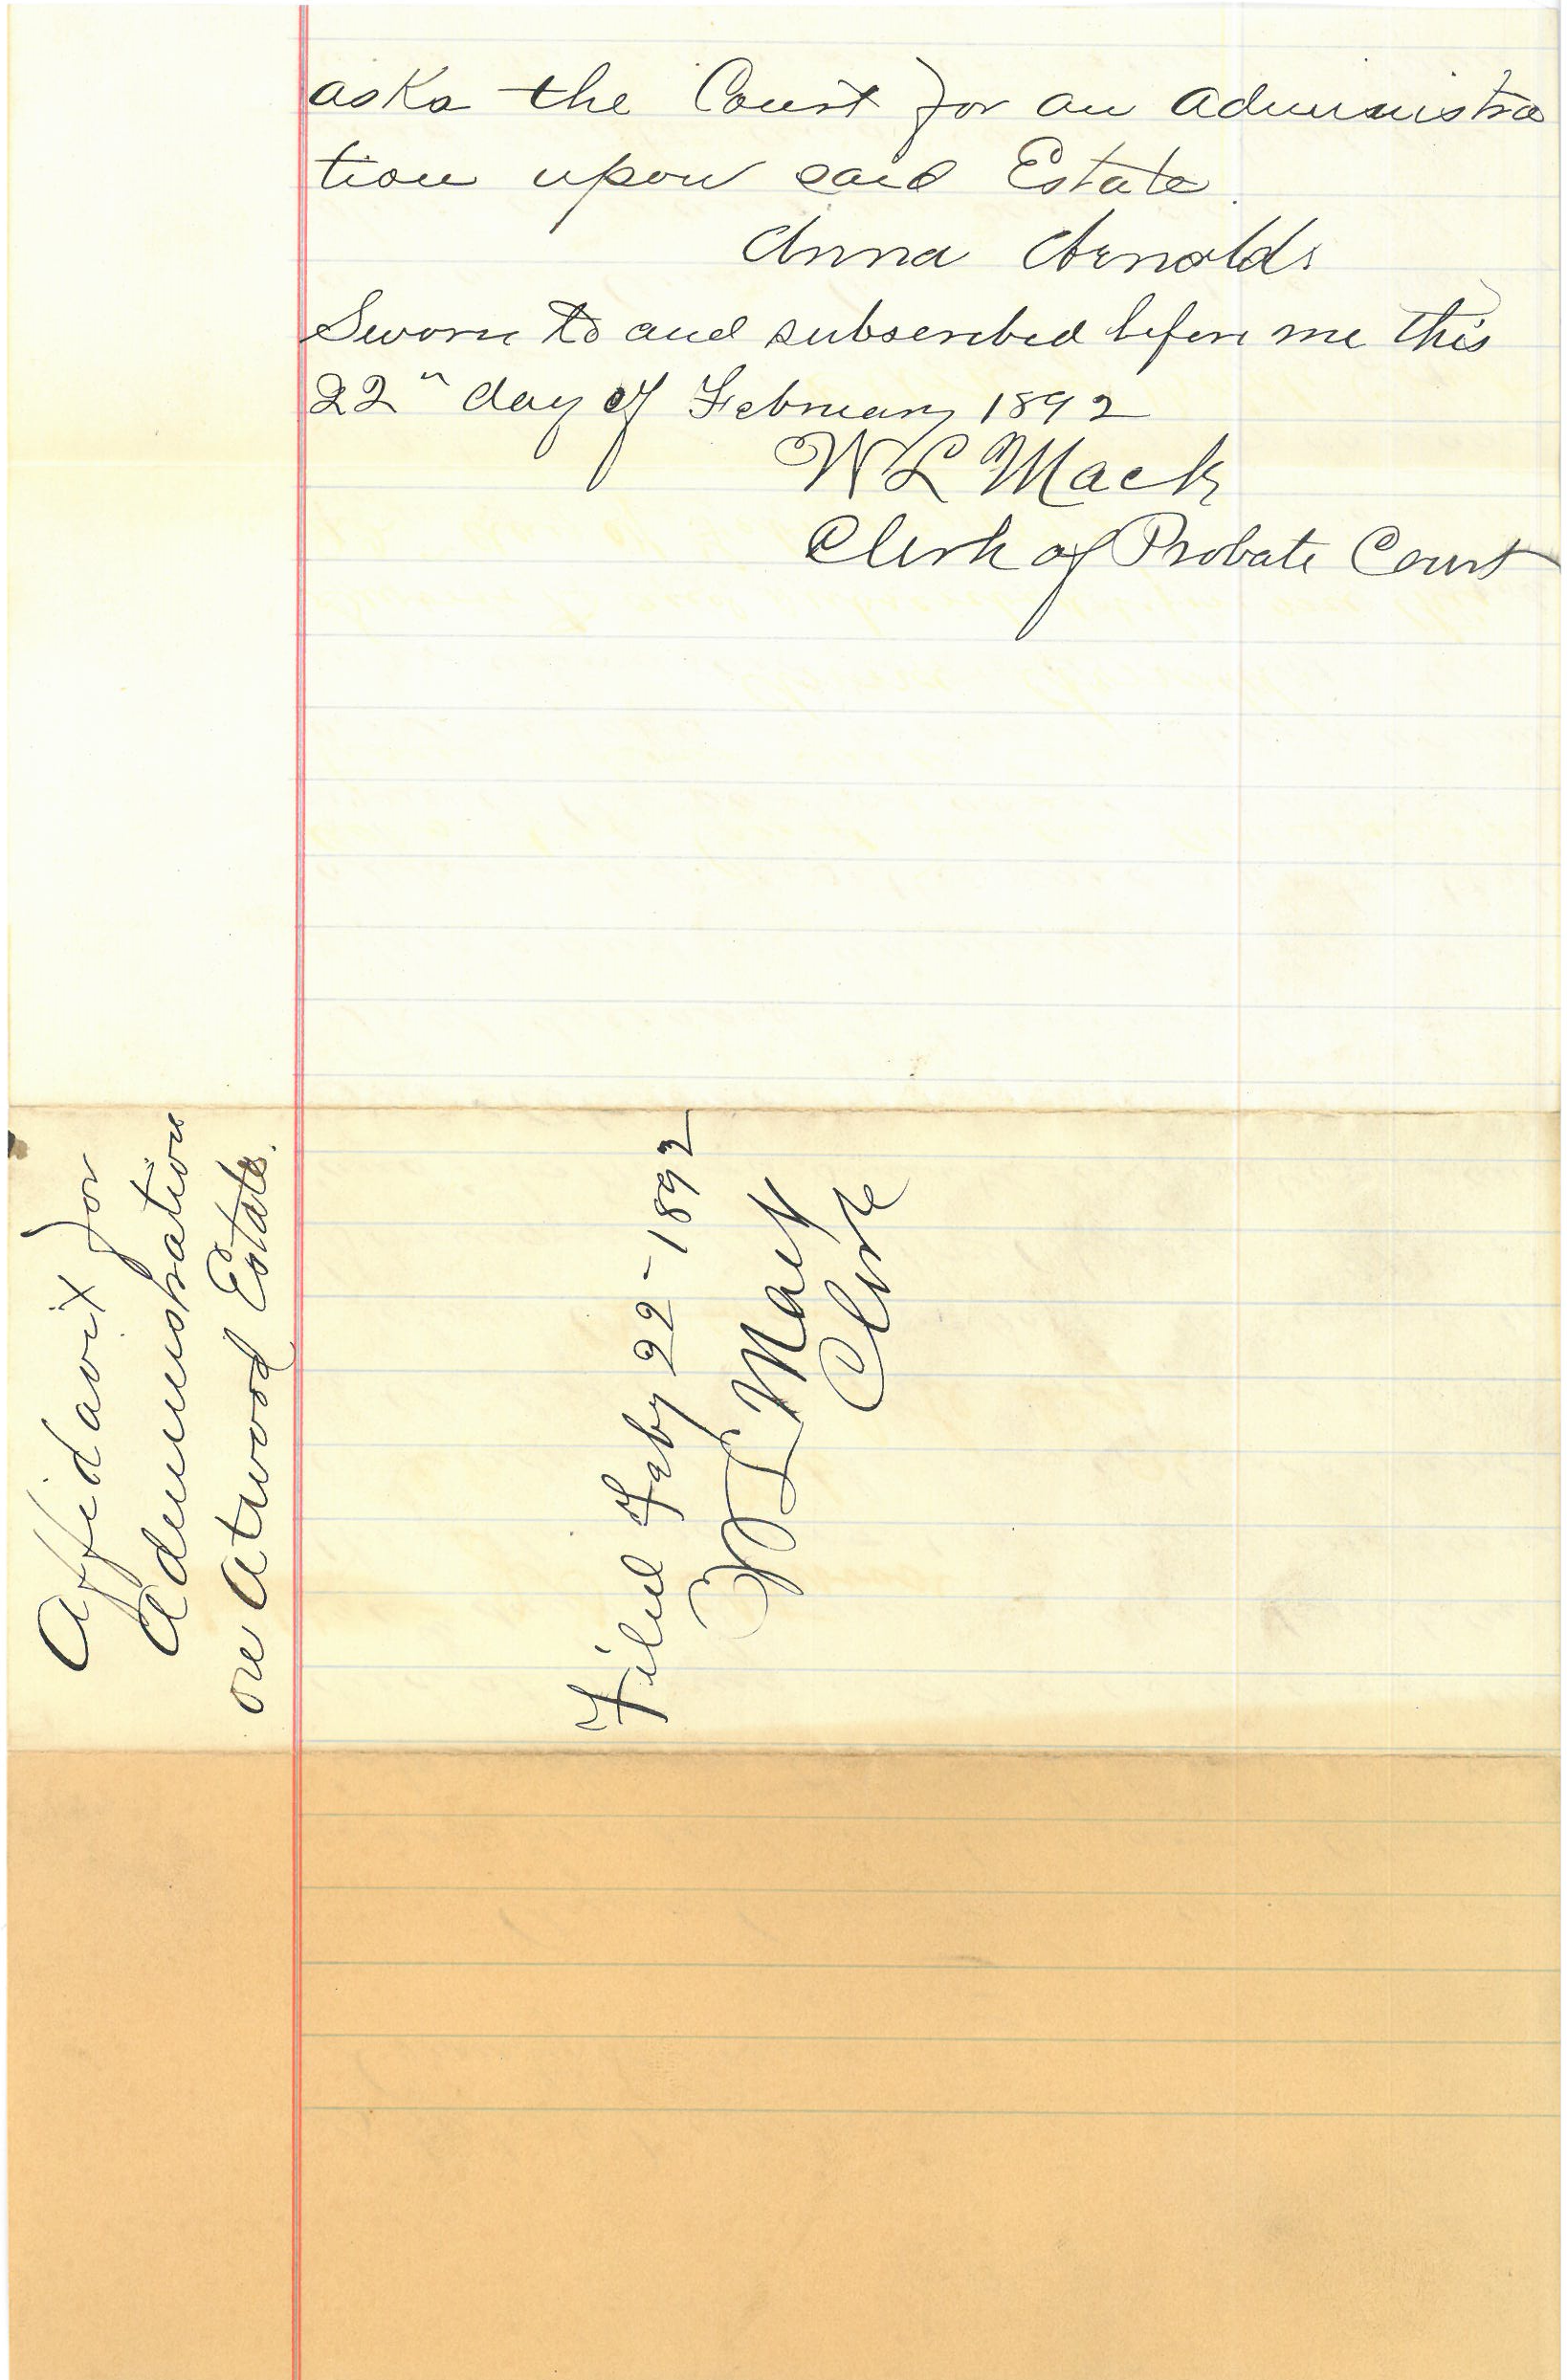 asks the Court for an administra
tion upon said Estate.
Anna Arnolds
Sworn to and subscribed before me this
22" day of February 1892
W L Mack
Clerk of Probate Court
Affidavit for
Administration
on Atwood Estate.
Filed Feby 22-1892
W L Mack
Clerk